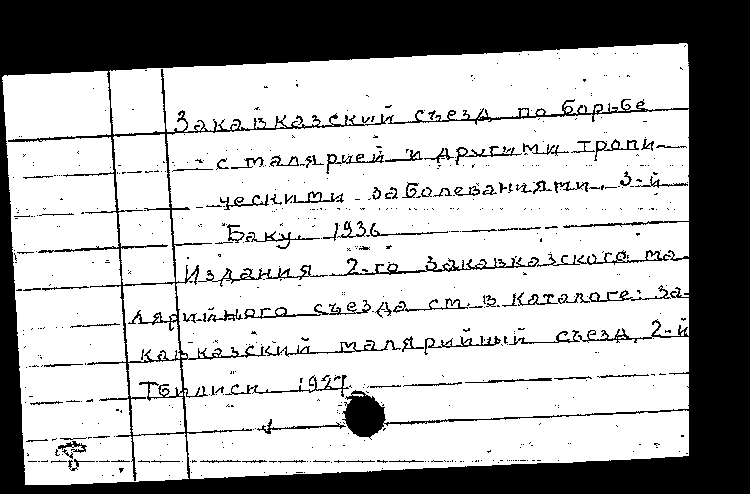 Закавказский съезд по борьбе
с малярией и другими тропи-
ческими заболеваниями. 3-й
Баку. 1936
Издания 2-го Закавказского ма-
лярийного съезда см. в каталоге: За-
кавказский малярийный съезд, 2-й
Тбилиси. 1927